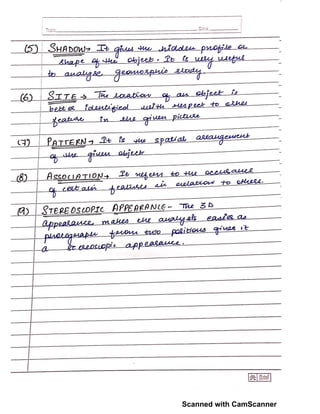 Date
(5) SHADOW → It gives the hidden profile or
shape of the object. It is very useful
to analyse geomorphic study.
(6) SITE → The location of an object is
best identified with respect to other
feature in the given picture
(7) PATTERN → It is the spatial arrangement
of the given object
(8) ASSOCIATION → It refers to the occurance
of certain features in relation to others.
(9) STEREOSCOPIC APPEARANCE - The 3D
appearance makes the analysis easier as
photograph from two positions gives it
a stereoscopic appearance.
Scanned with CamScanner